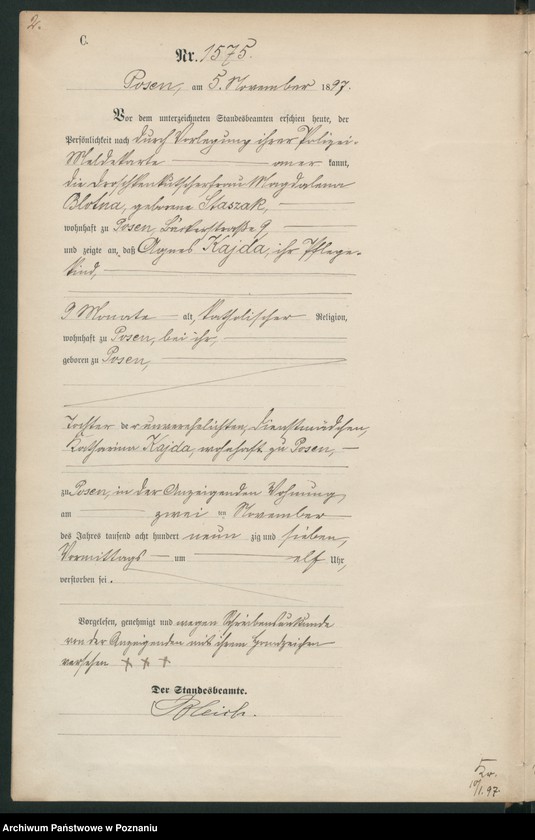 2.
C.
Nr. 1575.
Posen, am 5. November 1897.
Vor dem unterzeichneten Standesbeamten erschien heute, der
Persönlichkeit nach durch Vorlegung ihrer Polizei-
Meldekarte anerkannt,
die Droschkenkutscherfrau Magdalena
Blotna, geborene Staszak,
wohnhaft zu Posen, Bäckerstraße 9,
und zeigte an, daß Agnes Kajda, ihr Pflege-
kind,
9 Monate alt, katholischer Religion,
wohnhaft zu Posen, bei ihr,
geboren zu Posen,
Tochter der unverehelichten Dienstmädchen,
Katharina Kajda, wohnhaft zu Posen,
zu Posen, in der Anzeigenden Wohnung
am zwei ten November
des Jahres tausend acht hundert neun zig und sieben,
Vormittags um elf Uhr,
verstorben sei.
Vorgelesen, genehmigt und wegen Schreibensunkunde
von der Anzeigenden mit ihrem Handzeichen
versehen + + +
Der Standesbeamte.
Bleich.
97
Archiwum Państwowe w Poznaniu